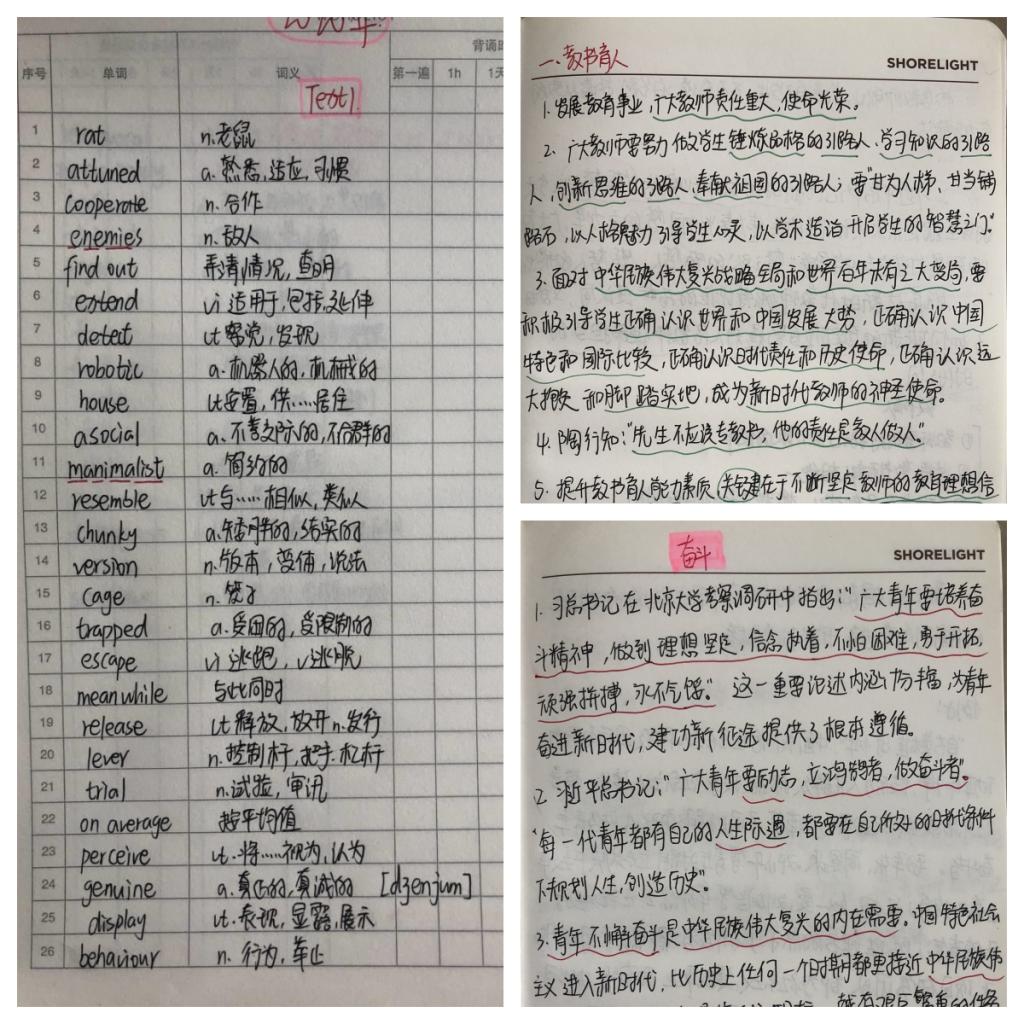 背诵
序号 单词 词义 第一遍 1h 1天
Text1
1 rat n.老鼠
2 attuned a.熟悉,适应,习惯
3 cooperate n.合作
4 enemies n.敌人
5 find out 弄清情况,查明
6 extend vi 适用于,包括,延伸
7 detect vt 察觉,发现
8 robotic a.机器人的,机械式的
9 house vt 安置,供……居住
10 asocial a.不喜交际的,不合群的
11 manimalist a.简约的
12 resemble vt 与……相似,类似
13 chunky a.矮胖的,结实的
14 version n.版本,变体,说法
15 cage n.笼子
16 trapped a.受困的,受限制的
17 escape vi 逃跑,逃脱
18 meanwhile 与此同时
19 release vt 释放,放开 n.发行
20 lever n.控制杆,把手.杠杆
21 trial n.试验,审讯
22 on average 按平均值
23 perceive vt.将……视为,认为
24 genuine a.真正的,真诚的 [dʒenjum]
25 display vt.表现,显露,展示
26 behaviour n.行为,举止
一、教书育人 SHORELIGHT
1.发展教育事业,广大教师责任重大,使命光荣。
2.广大教师要努力做学生锤炼品格的引路人、学习知识的引路
人、创新思维的引路人、奉献祖国的引路人;要"甘为人梯、甘当铺
路石,以人格魅力引导学生心灵,以学术造诣开启学生的智慧之门"
3.面对中华民族伟大复兴战略全局和世界百年未有之大变局,要
积极引导学生正确认识世界和中国发展大势,正确认识中国
特色和国际比较,正确认识时代责任和历史使命,正确认识远
大抱负和脚踏实地,成为新时代教师的神圣使命。
4.陶行知:"先生不应该专教书,他的责任是教人做人"
5.提升教书育人能力素质,关键在于不断坚定教师的教育理想信
奋斗 SHORELIGHT
1.习总书记在北京大学考察调研中指出:"广大青年要培养奋
斗精神,做到理想坚定,信念执着,不怕困难,勇于开拓,
顽强拼搏,永不气馁"这一重要论述内涵十分丰富,为青年
奋进新时代,建功新征途提供了根本遵循。
2.习近平总书记:"广大青年要励志,立鸿鹄志,做奋斗者"
"每一代青年都有自己的人生际遇,都要在自己所处的时代条件
下规划人生,创造历史"。
3.青年不懈奋斗是中华民族伟大复兴的内在需要。中国特色社会
主义进入新时代,比历史上任何一个时期都更接近中华民族伟